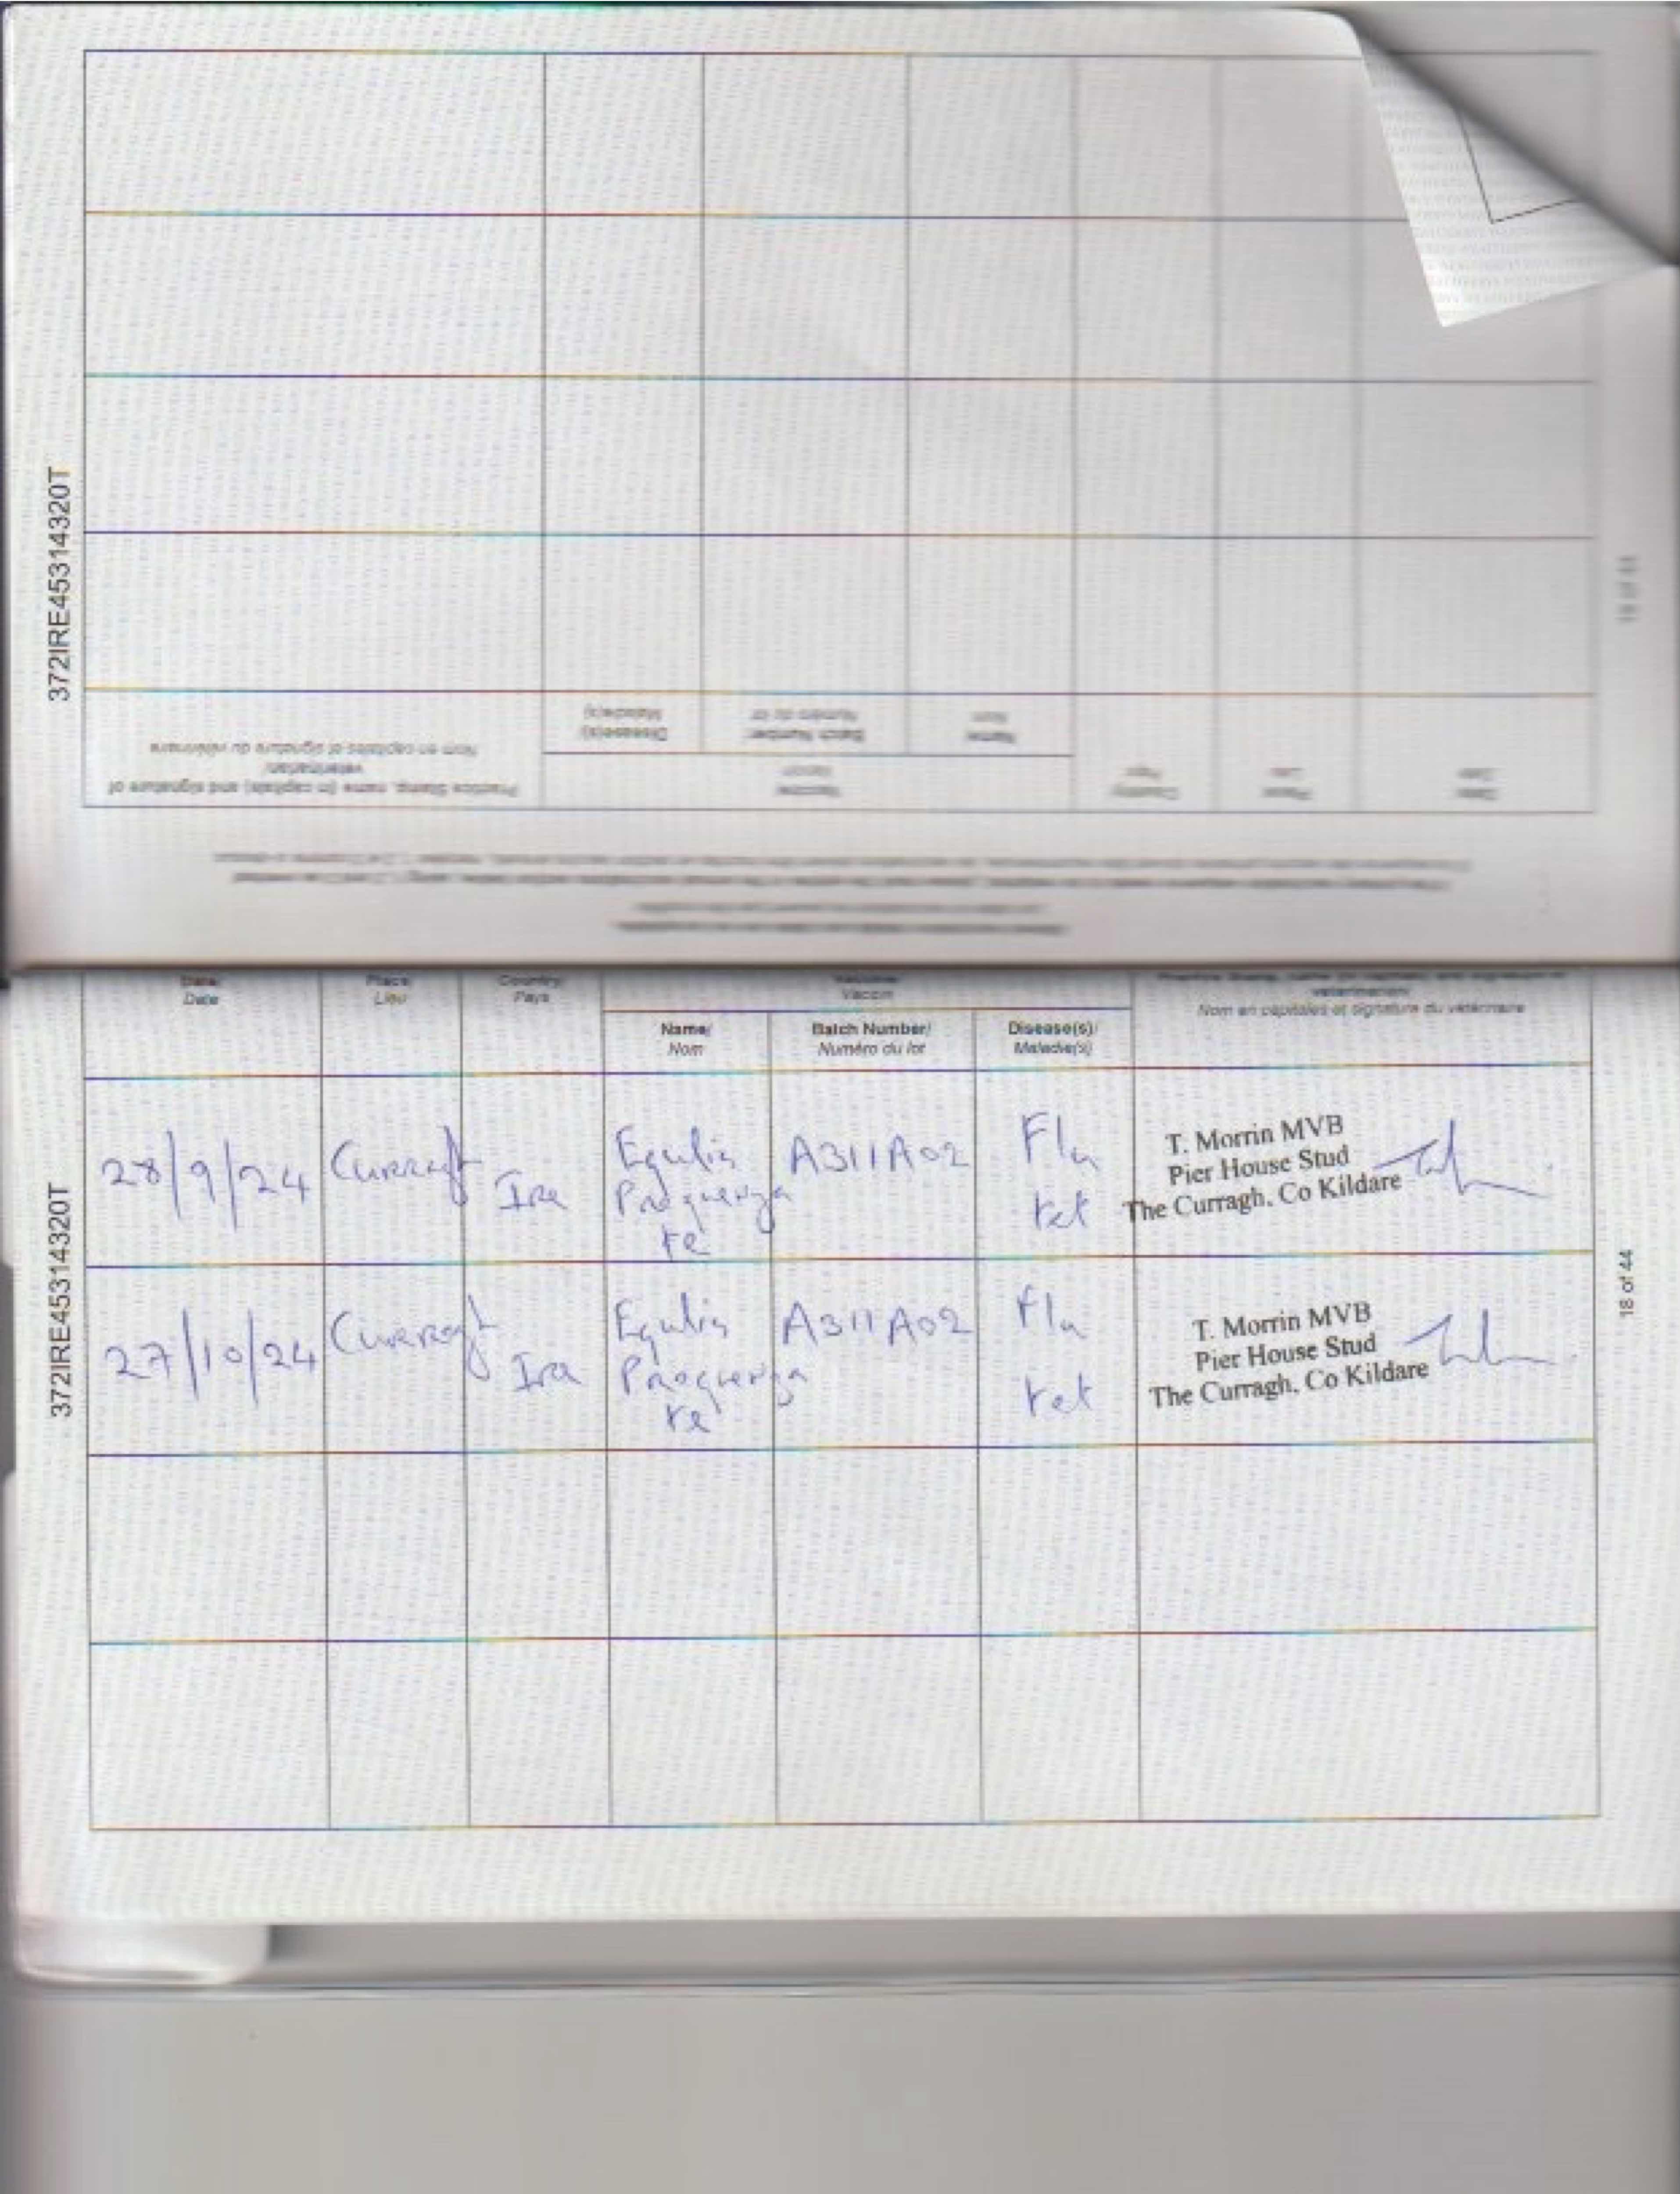 372IRE45314320T
Practice Stamp, name (in capitals) and signature of
veterinarian/
Nom en capitales et signature du vétérinaire
Disease(s)/
Maladie(s)
Batch Number/
Numéro du lot
Name/
Nom
Vaccine/
Vaccin
Country/
Pays
Place/
Lieu
Date/
Date
372IRE45314320T
Date/
Date
Place/
Lieu
Country/
Pays
Vaccine/
Vaccin
veterinarian/
Nom en capitales et signature du vétérinaire
Name/
Nom
Batch Number/
Numéro du lot
Disease(s)/
Maladie(s)
28/9/24 Curragh Ire
Equilis
Prequenza
te
A311A02
Flu
tet
T. Morrin MVB
Pier House Stud
The Curragh, Co Kildare
27/10/24 Curragh Ire
Equilis
Prequenza
te
A311A02
Flu
tet
T. Morrin MVB
Pier House Stud
The Curragh, Co Kildare
18 of 44